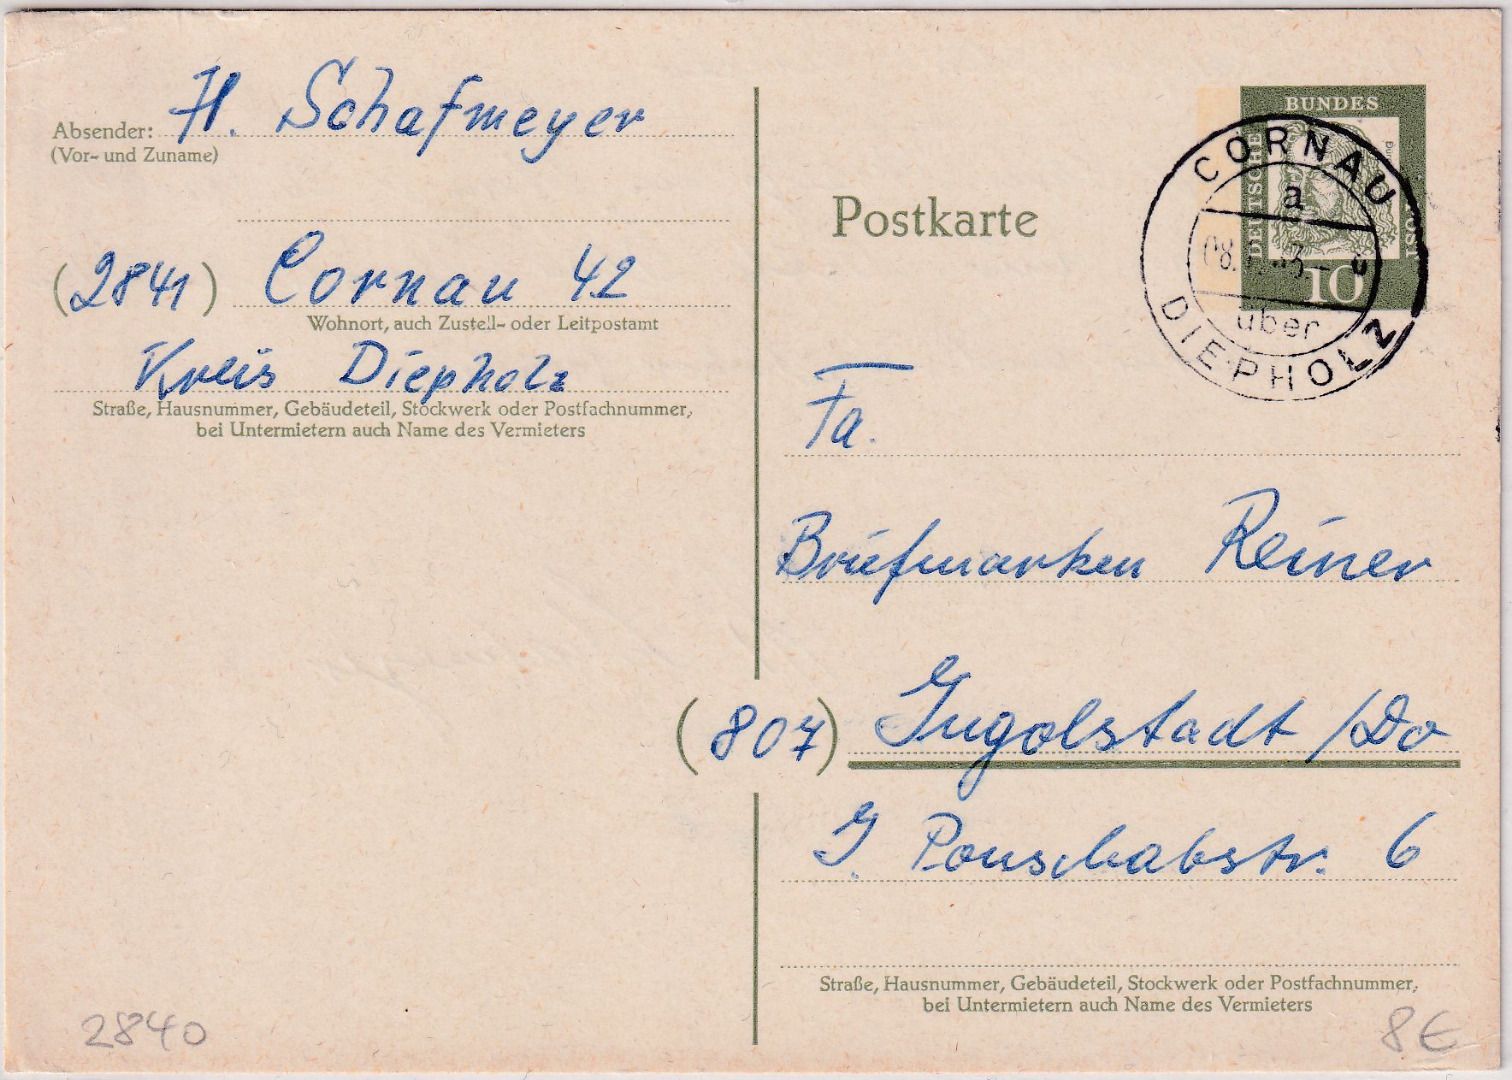 Absender: H. Schafmeyer
(Vor- und Zuname)
(2841) Cornau 42
Wohnort, auch Zustell- oder Leitpostamt
Kreis Diepholz
Straße, Hausnummer, Gebäudeteil, Stockwerk oder Postfachnummer,
bei Untermietern auch Name des Vermieters
2840
Postkarte
DEUTSCHE BUNDES POST
10
CORNAU
a
über
DIEPHOLZ
Fa.
Briefmarken Reiner
(807) Ingolstadt /Do
J. Ponschabstr. 6
Straße, Hausnummer, Gebäudeteil, Stockwerk oder Postfachnummer,
bei Untermietern auch Name des Vermieters
8€